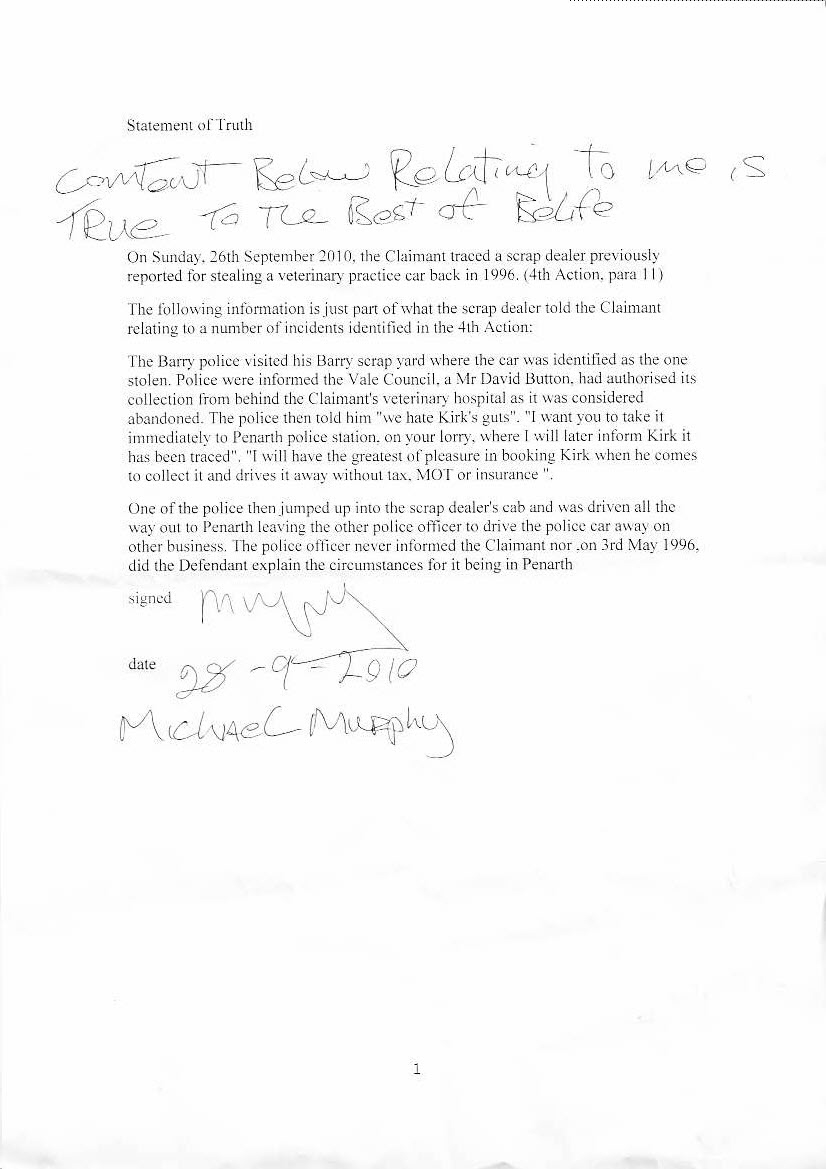 Statement of Truth
Contant Below Relating to me is
TRue To The Best of Belife
On Sunday, 26th September 2010, the Claimant traced a scrap dealer previously
reported for stealing a veterinary practice car back in 1996. (4th Action, para 11)
The following information is just part of what the scrap dealer told the Claimant
relating to a number of incidents identified in the 4th Action:
The Barry police visited his Barry scrap yard where the car was identified as the one
stolen. Police were informed the Vale Council, a Mr David Button, had authorised its
collection from behind the Claimant's veterinary hospital as it was considered
abandoned. The police then told him "we hate Kirk's guts". "I want you to take it
immediately to Penarth police station, on your lorry, where I will later inform Kirk it
has been traced". "I will have the greatest of pleasure in booking Kirk when he comes
to collect it and drives it away without tax, MOT or insurance ".
One of the police then jumped up into the scrap dealer's cab and was driven all the
way out to Penarth leaving the other police officer to drive the police car away on
other business. The police officer never informed the Claimant nor ,on 3rd May 1996,
did the Defendant explain the circumstances for it being in Penarth
signed
date 28-9-2010
Michael Murphy
1